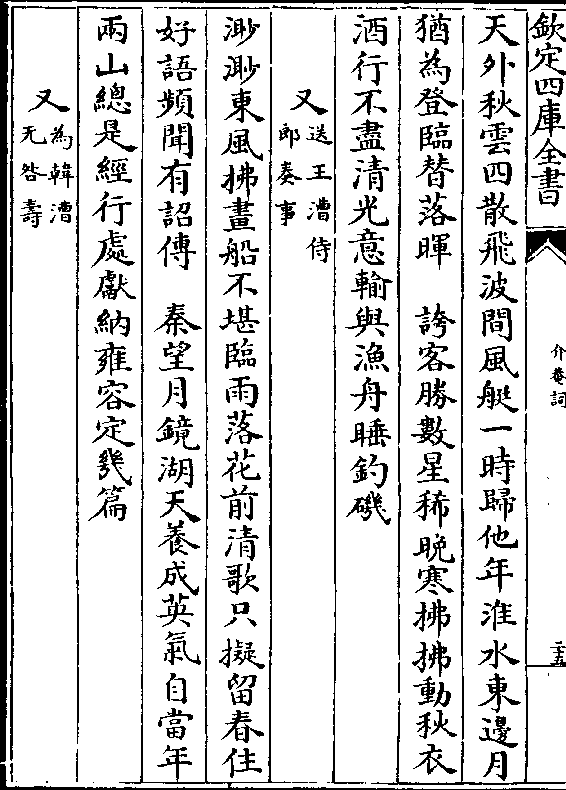 欽定四庫全書
介菴詞
二十五
天外秋雲四散飛波間風艇一時歸他年淮水東邊月
猶為登臨替落暉　誇客勝數星稀晚寒拂拂動秋衣
酒行不盡清光意輸與漁舟睡釣磯
又送王漕侍
郎奏事
渺渺東風拂畫船不堪臨雨落花前清歌只擬留春住
好語頻聞有詔傳　秦望月鏡湖天養成英氣自當年
兩山總是經行處獻納雍容定幾篇
又為韓漕
无咎壽